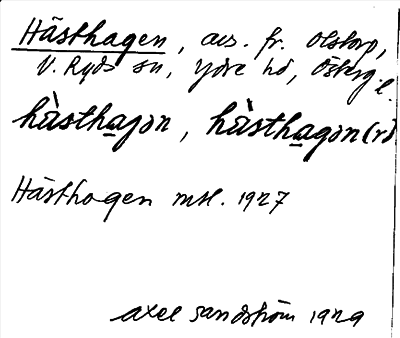 Hästhagen, avs. fr. Olstorp,
V. Ryds sn, Ydre hd, Österg l.
hàsthagən, hàsthagən(r)
Hästhagen mtl. 1927
Axel Sandström 1929